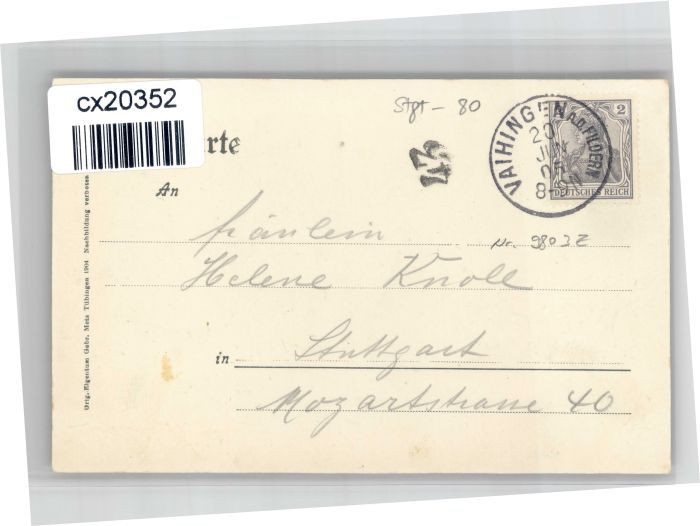 cx20352
rte
Stgt - 80
2
VAIHINGEN A.D. FILDERN
20
JUN
05
8-9
DEUTSCHES REICH
An
Fräulein
Nr. 9803Z
Helene Knoll
in Stuttgart
Mozartstrasse 40
Orig.-Eigentum Gebr. Metz Tübingen 1904 Nachbildung verboten